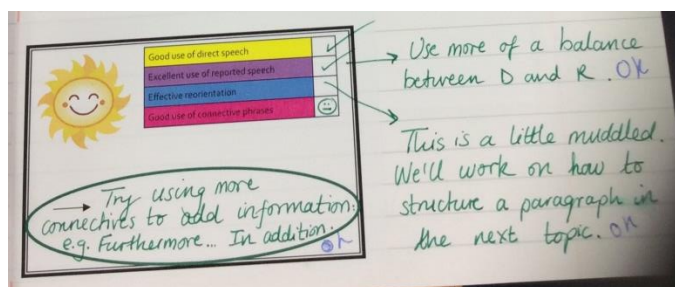 Good use of direct speech
Excellent use of reported speech
Effective reorientation
Good use of connective phrases
→ Try using more
connectives to add information:
e.g. Furthermore... In addition.
ok
→ Use more of a balance
between D and R. OK
This is a little muddled.
We'll work on how to
structure a paragraph in
the next topic. ok